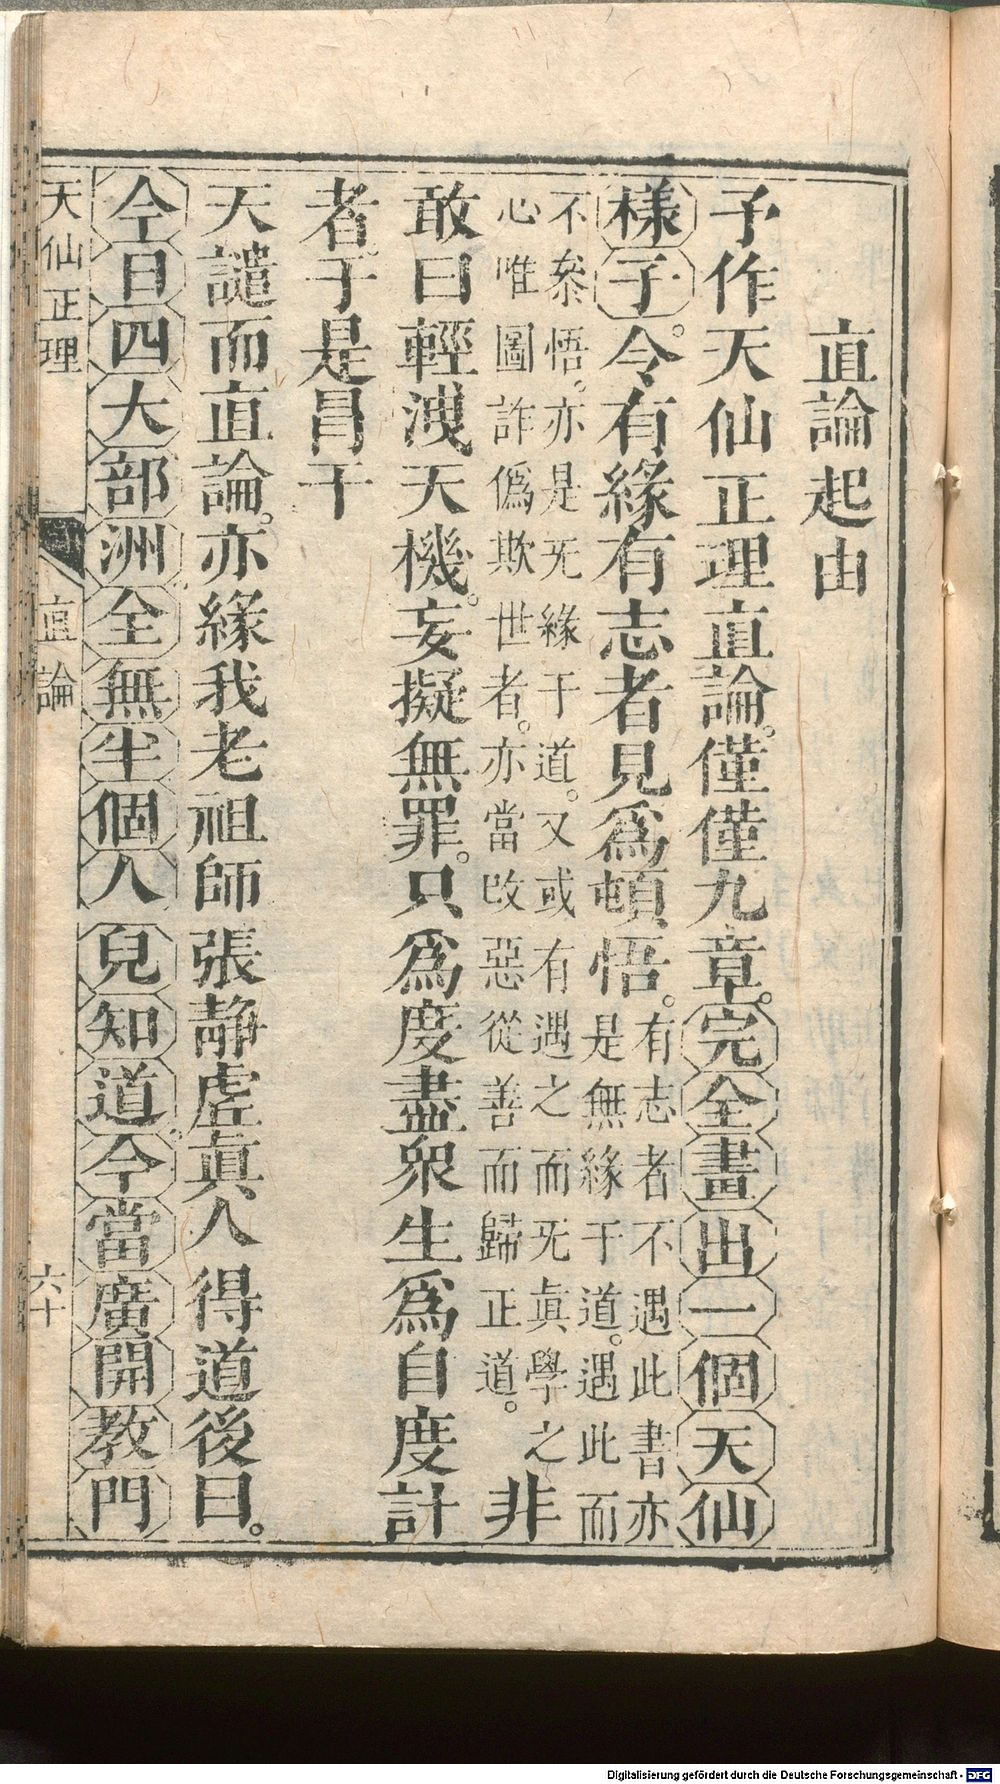 直論起由
予作天仙正理直論。僅僅九章。完全畫出一個天仙
樣子。令有緣有志者見爲頓悟。
有志者不遇此書亦
是無緣于道。遇此而
不叅悟。亦是无緣于道。又或有遇之而无眞學之
心唯圖詐僞欺世者。亦當改惡從善而歸正道。
非
敢曰輕洩天機。妄擬無罪。只爲度盡衆生爲自度計
者。于是冒干
天譴而直論。亦緣我老祖師張靜虛眞人得道後曰。
今日四大部洲全無半個人兒知道。今當廣開教門
天仙正理
直論
六十
Digitalisierung gefördert durch die Deutsche Forschungsgemeinschaft - DFG